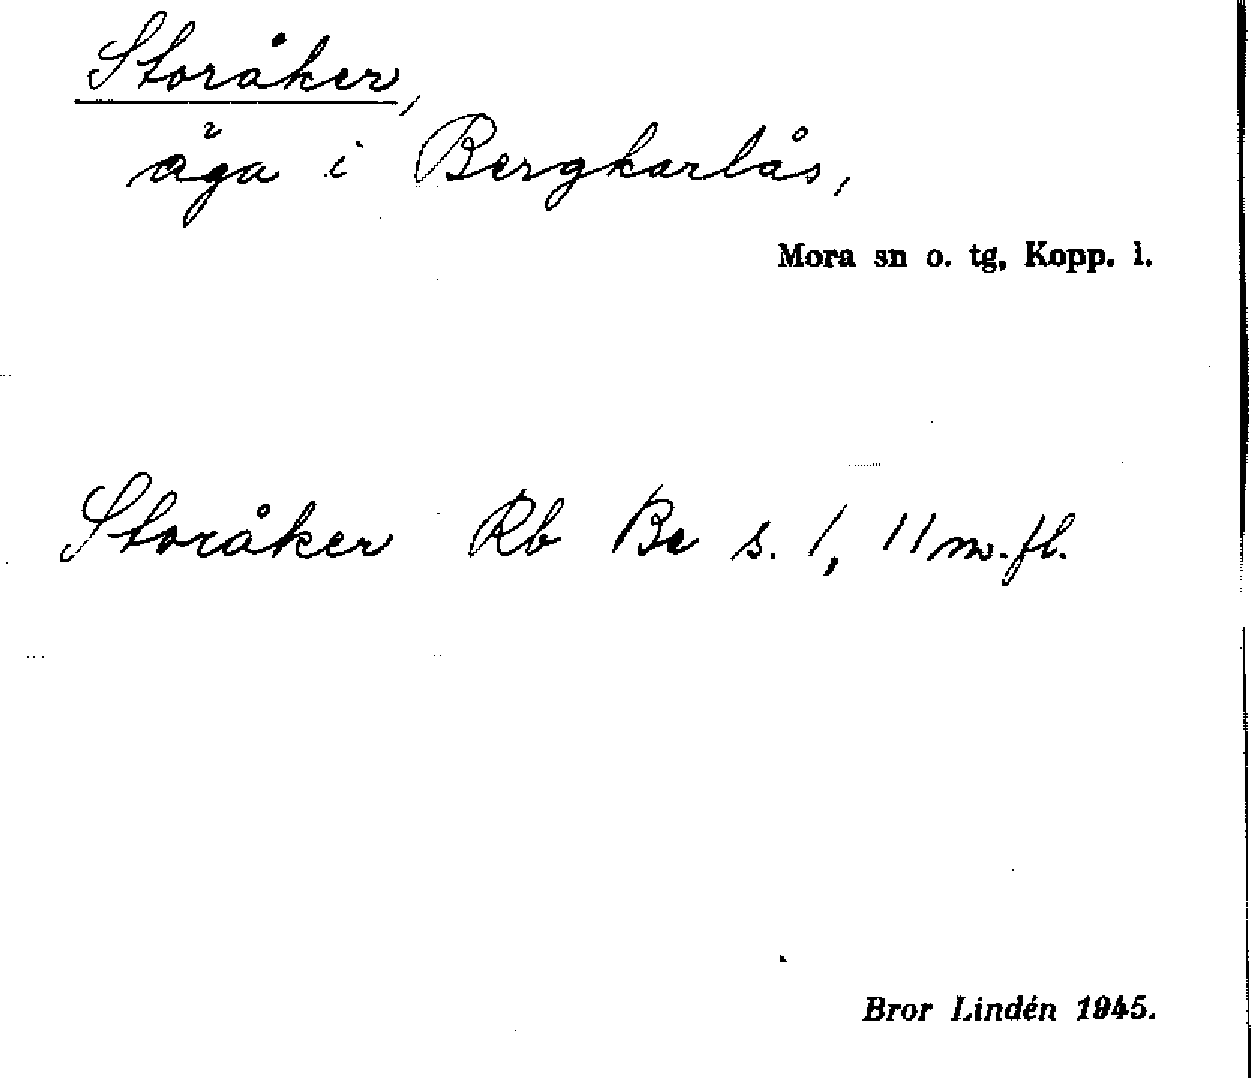 Storåker,
äga i Bergkarlås,
Mora sn o. tg, Kopp. l.
Storåker Rb Be s. 1, 11 m.fl.
Bror Lindén 1945.